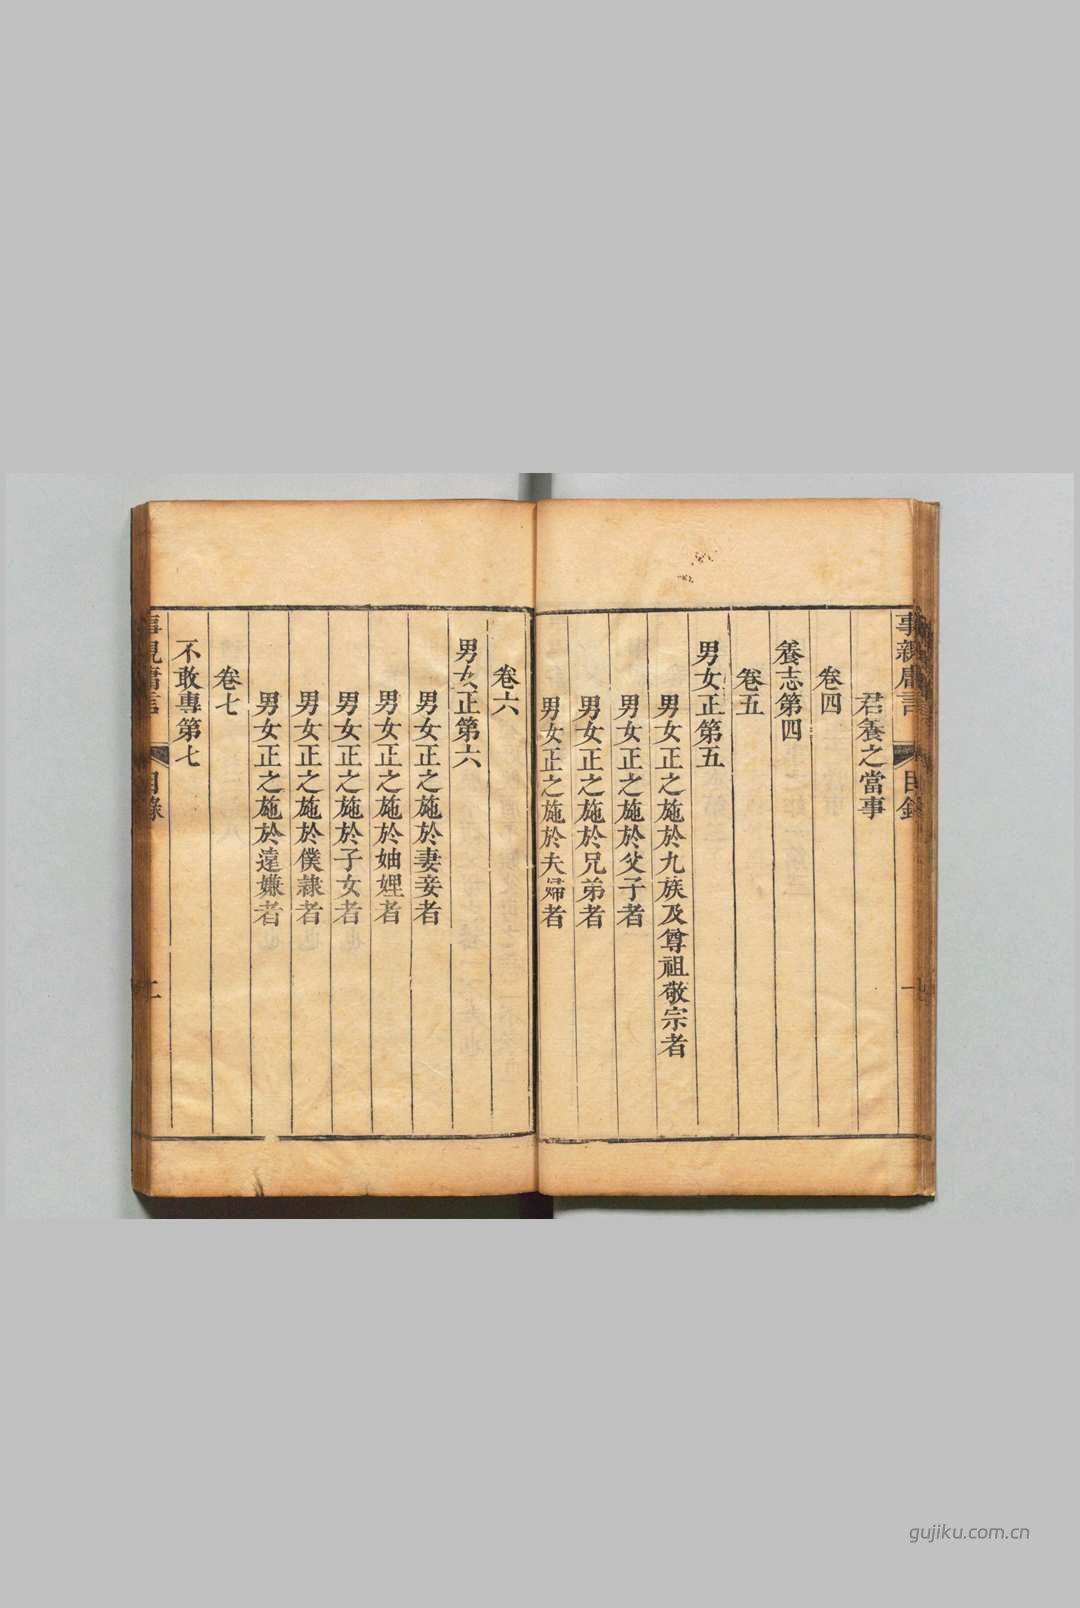 事親庸言
目錄
一
君養之當事
卷四
養志第四
卷五
男女正第五
男女正之施於九族及尊祖敬宗者
男女正之施於父子者
男女正之施於兄弟者
男女正之施於夫婦者
卷六
男女正第六
男女正之施於妻妾者
男女正之施於妯娌者
男女正之施於子女者
男女正之施於僕隸者
男女正之施於遠嫌者
卷七
不敢專第七
事親庸言
目錄
二
gujiku.com.cn